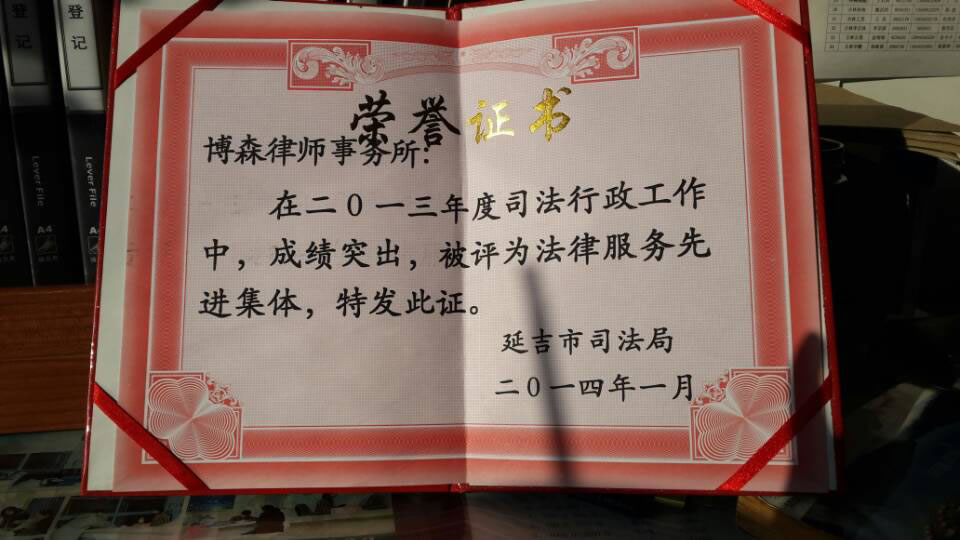 荣誉证书
博森律师事务所：
在二0一三年度司法行政工作
中，成绩突出，被评为法律服务先
进集体，特发此证。
延吉市司法局
二0一四年一月
登记
登记
Lever File
Lever File
A4
A4